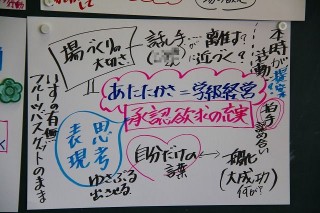 場づくりの
大切さ
話し手
が
離す?
に近づく?
本時が
提案
活動
あたたかさ=学級経営
拍手
認め合い
承認欲求の充実
思考
表現
ゆさぶる
出させる
自分だけの
言葉
変化
(大成功
何が?)
いすの有無…
フルーツバスケットのまま